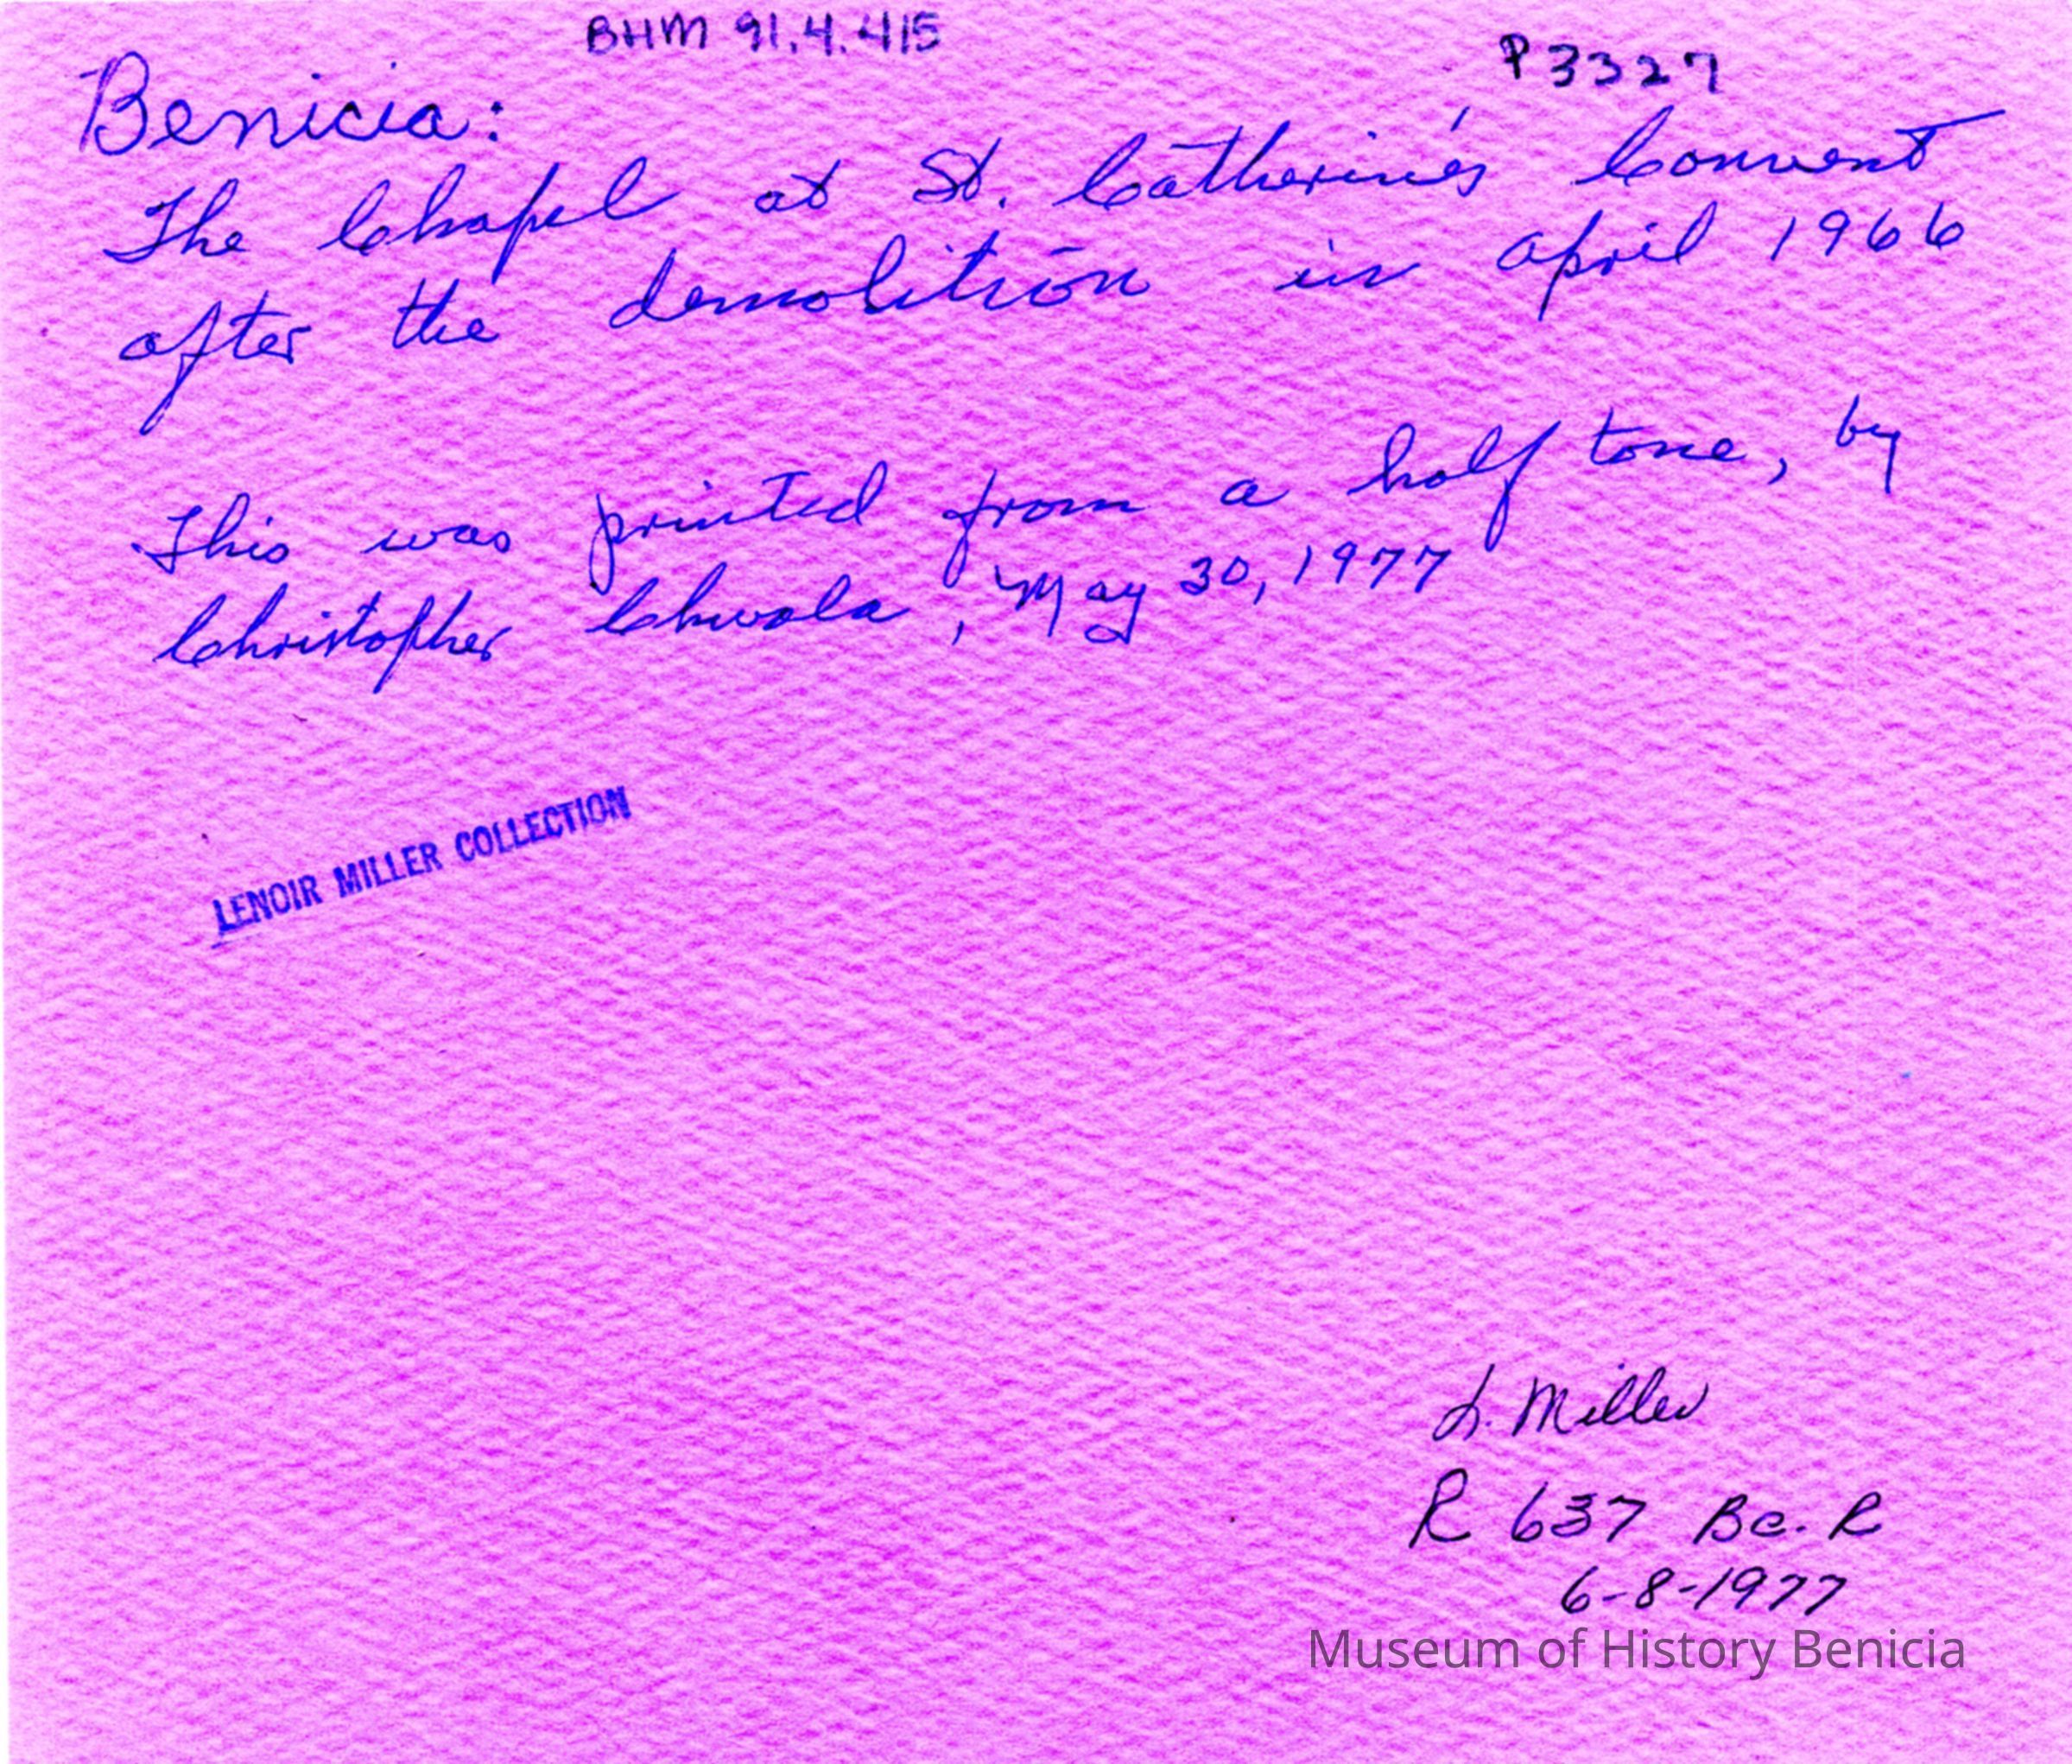 BHM 91.4.415
P3327
Benicia:
The Chapel at St. Catherine's Convent
after the demolition in April 1966
This was printed from a half tone, by
Christopher Chwala, May 30, 1977
LENOIR MILLER COLLECTION
L. Miller
R 637 Be. R
6-8-1977
Museum of History Benicia